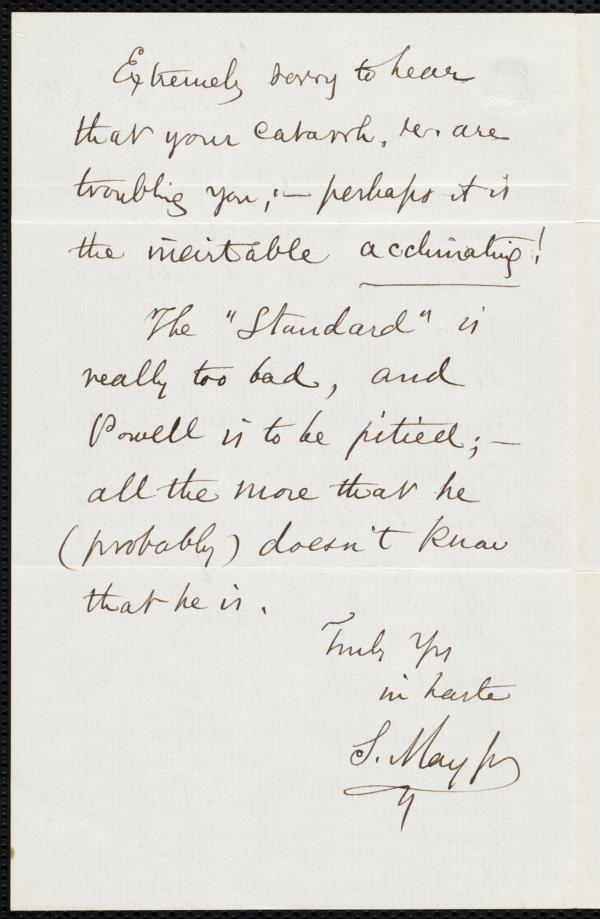 Extremely sorry to hear
that your catarrh, &c. are
troubling you;— perhaps it is
the inevitable acclimating!
The "Standard" is
really too bad, and
Powell is to be pitied;—
all the more that he
(probably) doesn't know
that he is.
Truly Yrs
in haste
S. May Jr